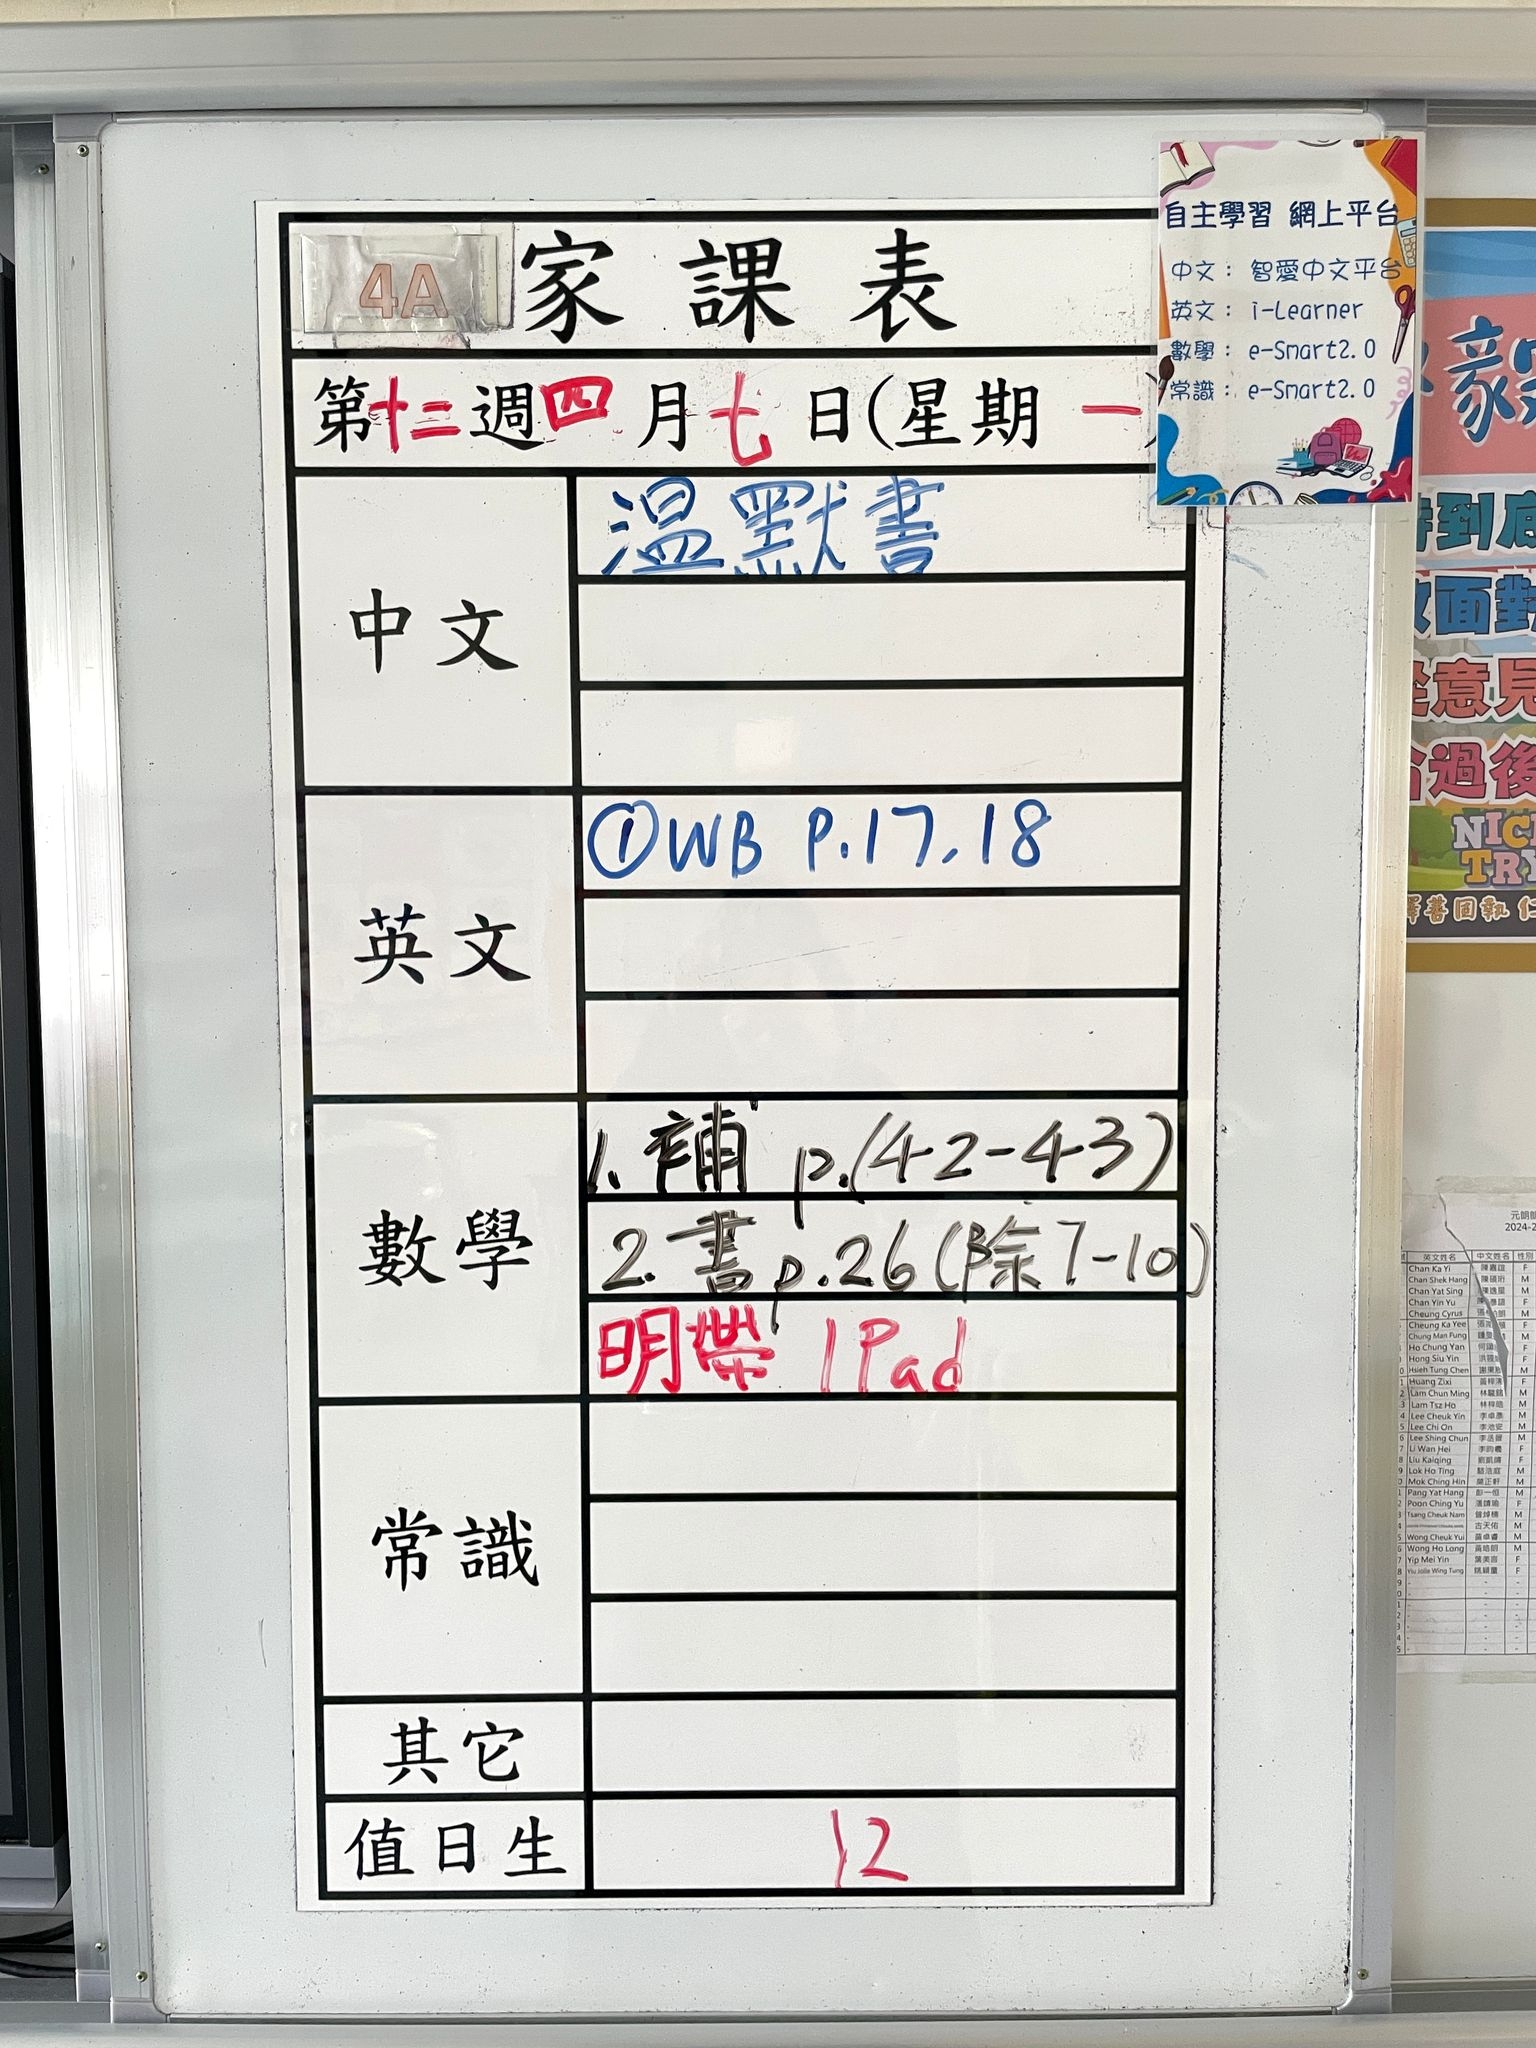 4A 家課表
第十二週四月七日(星期一)
中文
溫默書
英文
①WB P.17,18
數學
1. 補 p.(42-43)
2. 書 p.26(除7-10)
明帶 IPad
常識
其它
值日生
12
自主學習 網上平台
中文： 智愛中文平台
英文： i-Learner
數學： e-Smart2.0
常識： e-Smart2.0
到底
面對
意見
過後
NIC
TRY
擇善固執
2024-2
英文姓名 中文姓名 性別
Chan Ka Yi F
Chan Shek Hang M
Chan Yat Sing M
Chan Yin Yu F
Cheung Cyrus M
Cheung Ka Yee F
Chung Man Fung M
Ho Chung Yan F
Hong Siu Yin F
Hsieh Tung Chen M
Huang Zixi F
Lam Chun Ming M
Lam Tsz Ho 林梓皓 M
Lee Cheuk Yin 李卓彥 M
Lee Chi On 李池安 M
Lee Shing Chun M
Li Wan Hei F
Liu Kaiqing 劉凱晴 F
Lok Ho Ting 駱浩庭 M
Mok Ching Hin 莫正軒 M
Pang Yat Hang 彭一恒 M
Poon Ching Yu F
Tsang Cheuk Nam 曾焯楠 M
古天佑 M
Wong Cheuk Yui 黃卓睿 M
Wong Ho Long 黃皓朗 M
Yip Mei Yin 葉美言 F
Yiu Jolie Wing Tung 姚穎童 F